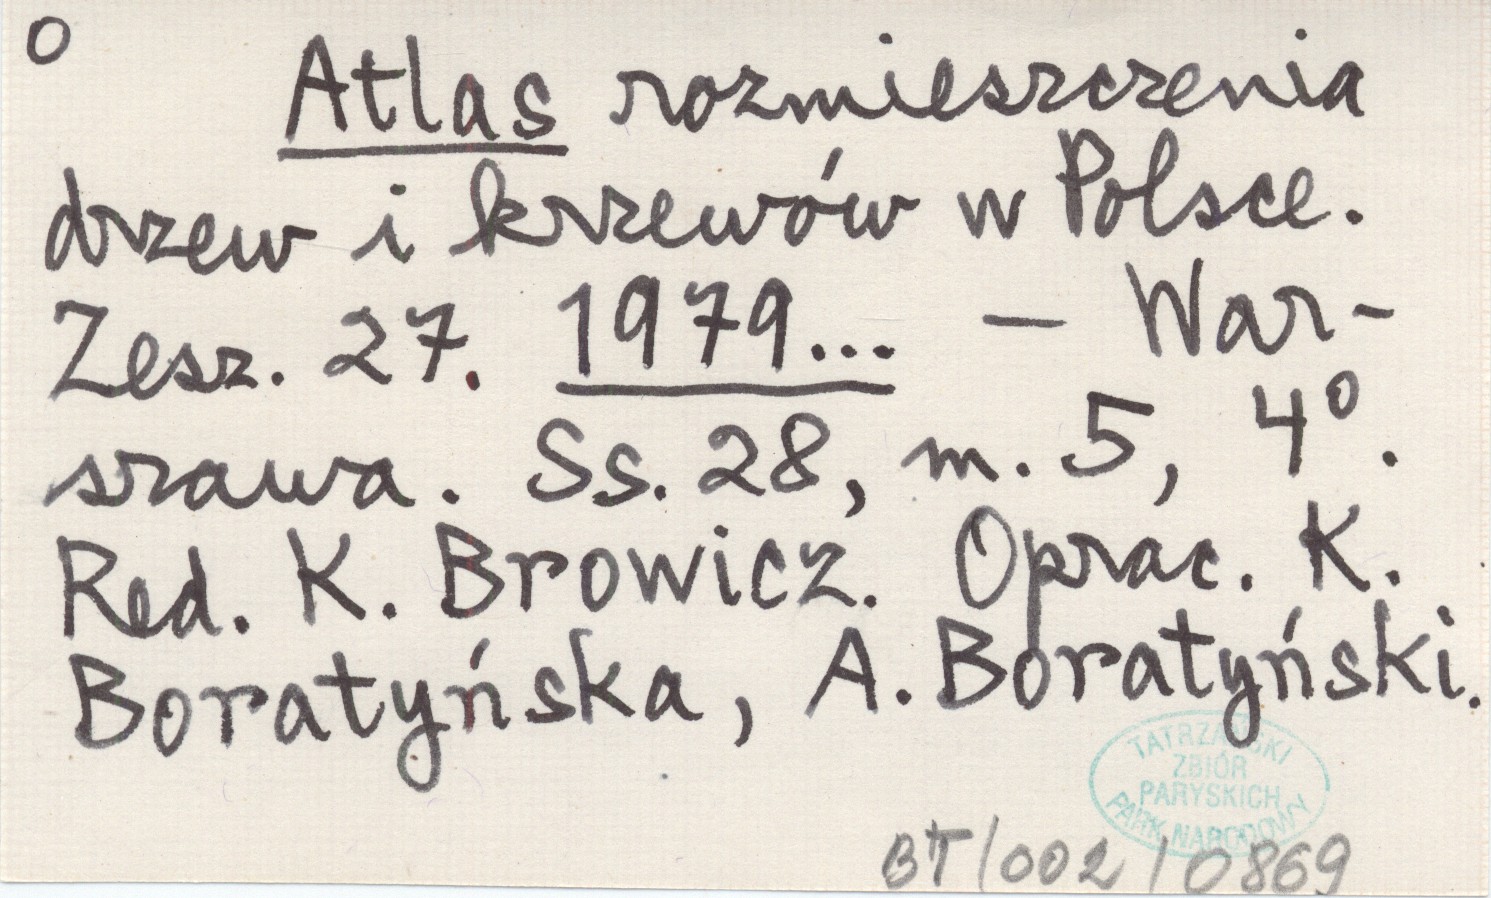 O
Atlas rozmieszczenia
drzew i krzewów w Polsce.
Zesz. 27. 1979... — War-
szawa. Ss. 28, m. 5, 4°.
Red. K. Browicz. Oprac. K.
Boratyńska, A. Boratyński.
TATRZAŃSKI
ZBIÓR
PARYSKICH
PARK NARODOWY
BT/002/0869